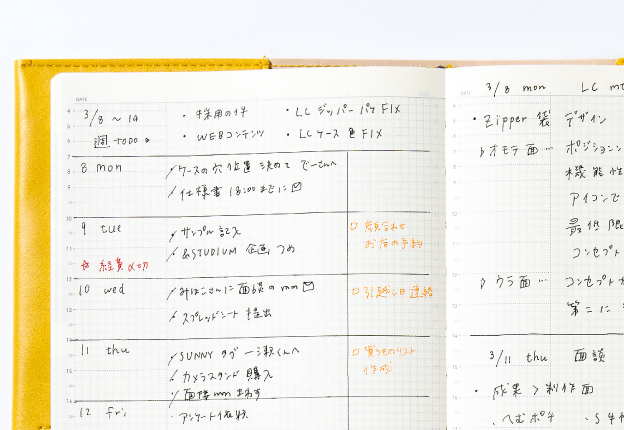 DATE
3/8 ~ 14
・採用の件
・LC ジッパーパケ FIX
週 TODO
・WEBコンテンツ
・LCケース 色 FIX
8 mon
ケースの穴 位置 決めて でーさんへ
仕様書 18:00までに
9 tue
サンプル 記入
□ 顔合わせ
お店の予約
&STUDIUM 企画 つめ
☆ 経費〆切
10 wed
さんに 面談の mm
□ 引越し日 連絡
スプレッドシート 提出
11 thu
SUNNY タグ 一瀬くんへ
□ 買うものリスト
作成
カメラスタンド 購入
面接 mm まわす
12 fri
アンケート 依頼
3/8 mon LC mt
・Zipper 袋 デザイン
オモテ面 … ポジション
機能性
アイコンで
最低限
コンセプト
ウラ面 … コンセプト
第二に
3/11 thu 面談
・成果 > 制作面